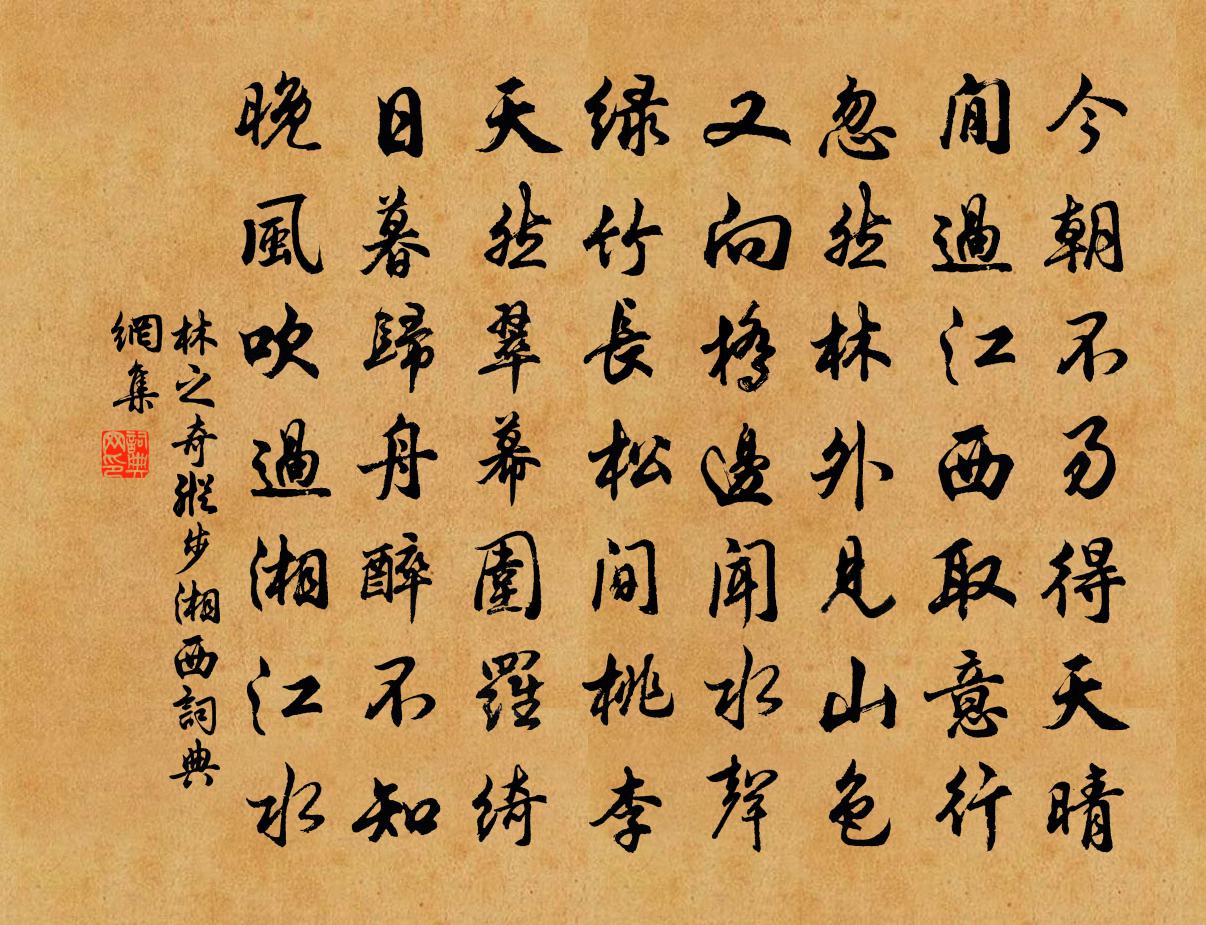 今朝不易得天晴
閒過江西取意行
忽然林外見山色
又向橋邊聞水聲
綠竹長松間桃李
天然翠幕圍羅綺
日暮歸舟醉不知
晚風吹過湘江水
林之奇縱步湘西詞典
網集
詞典
网印